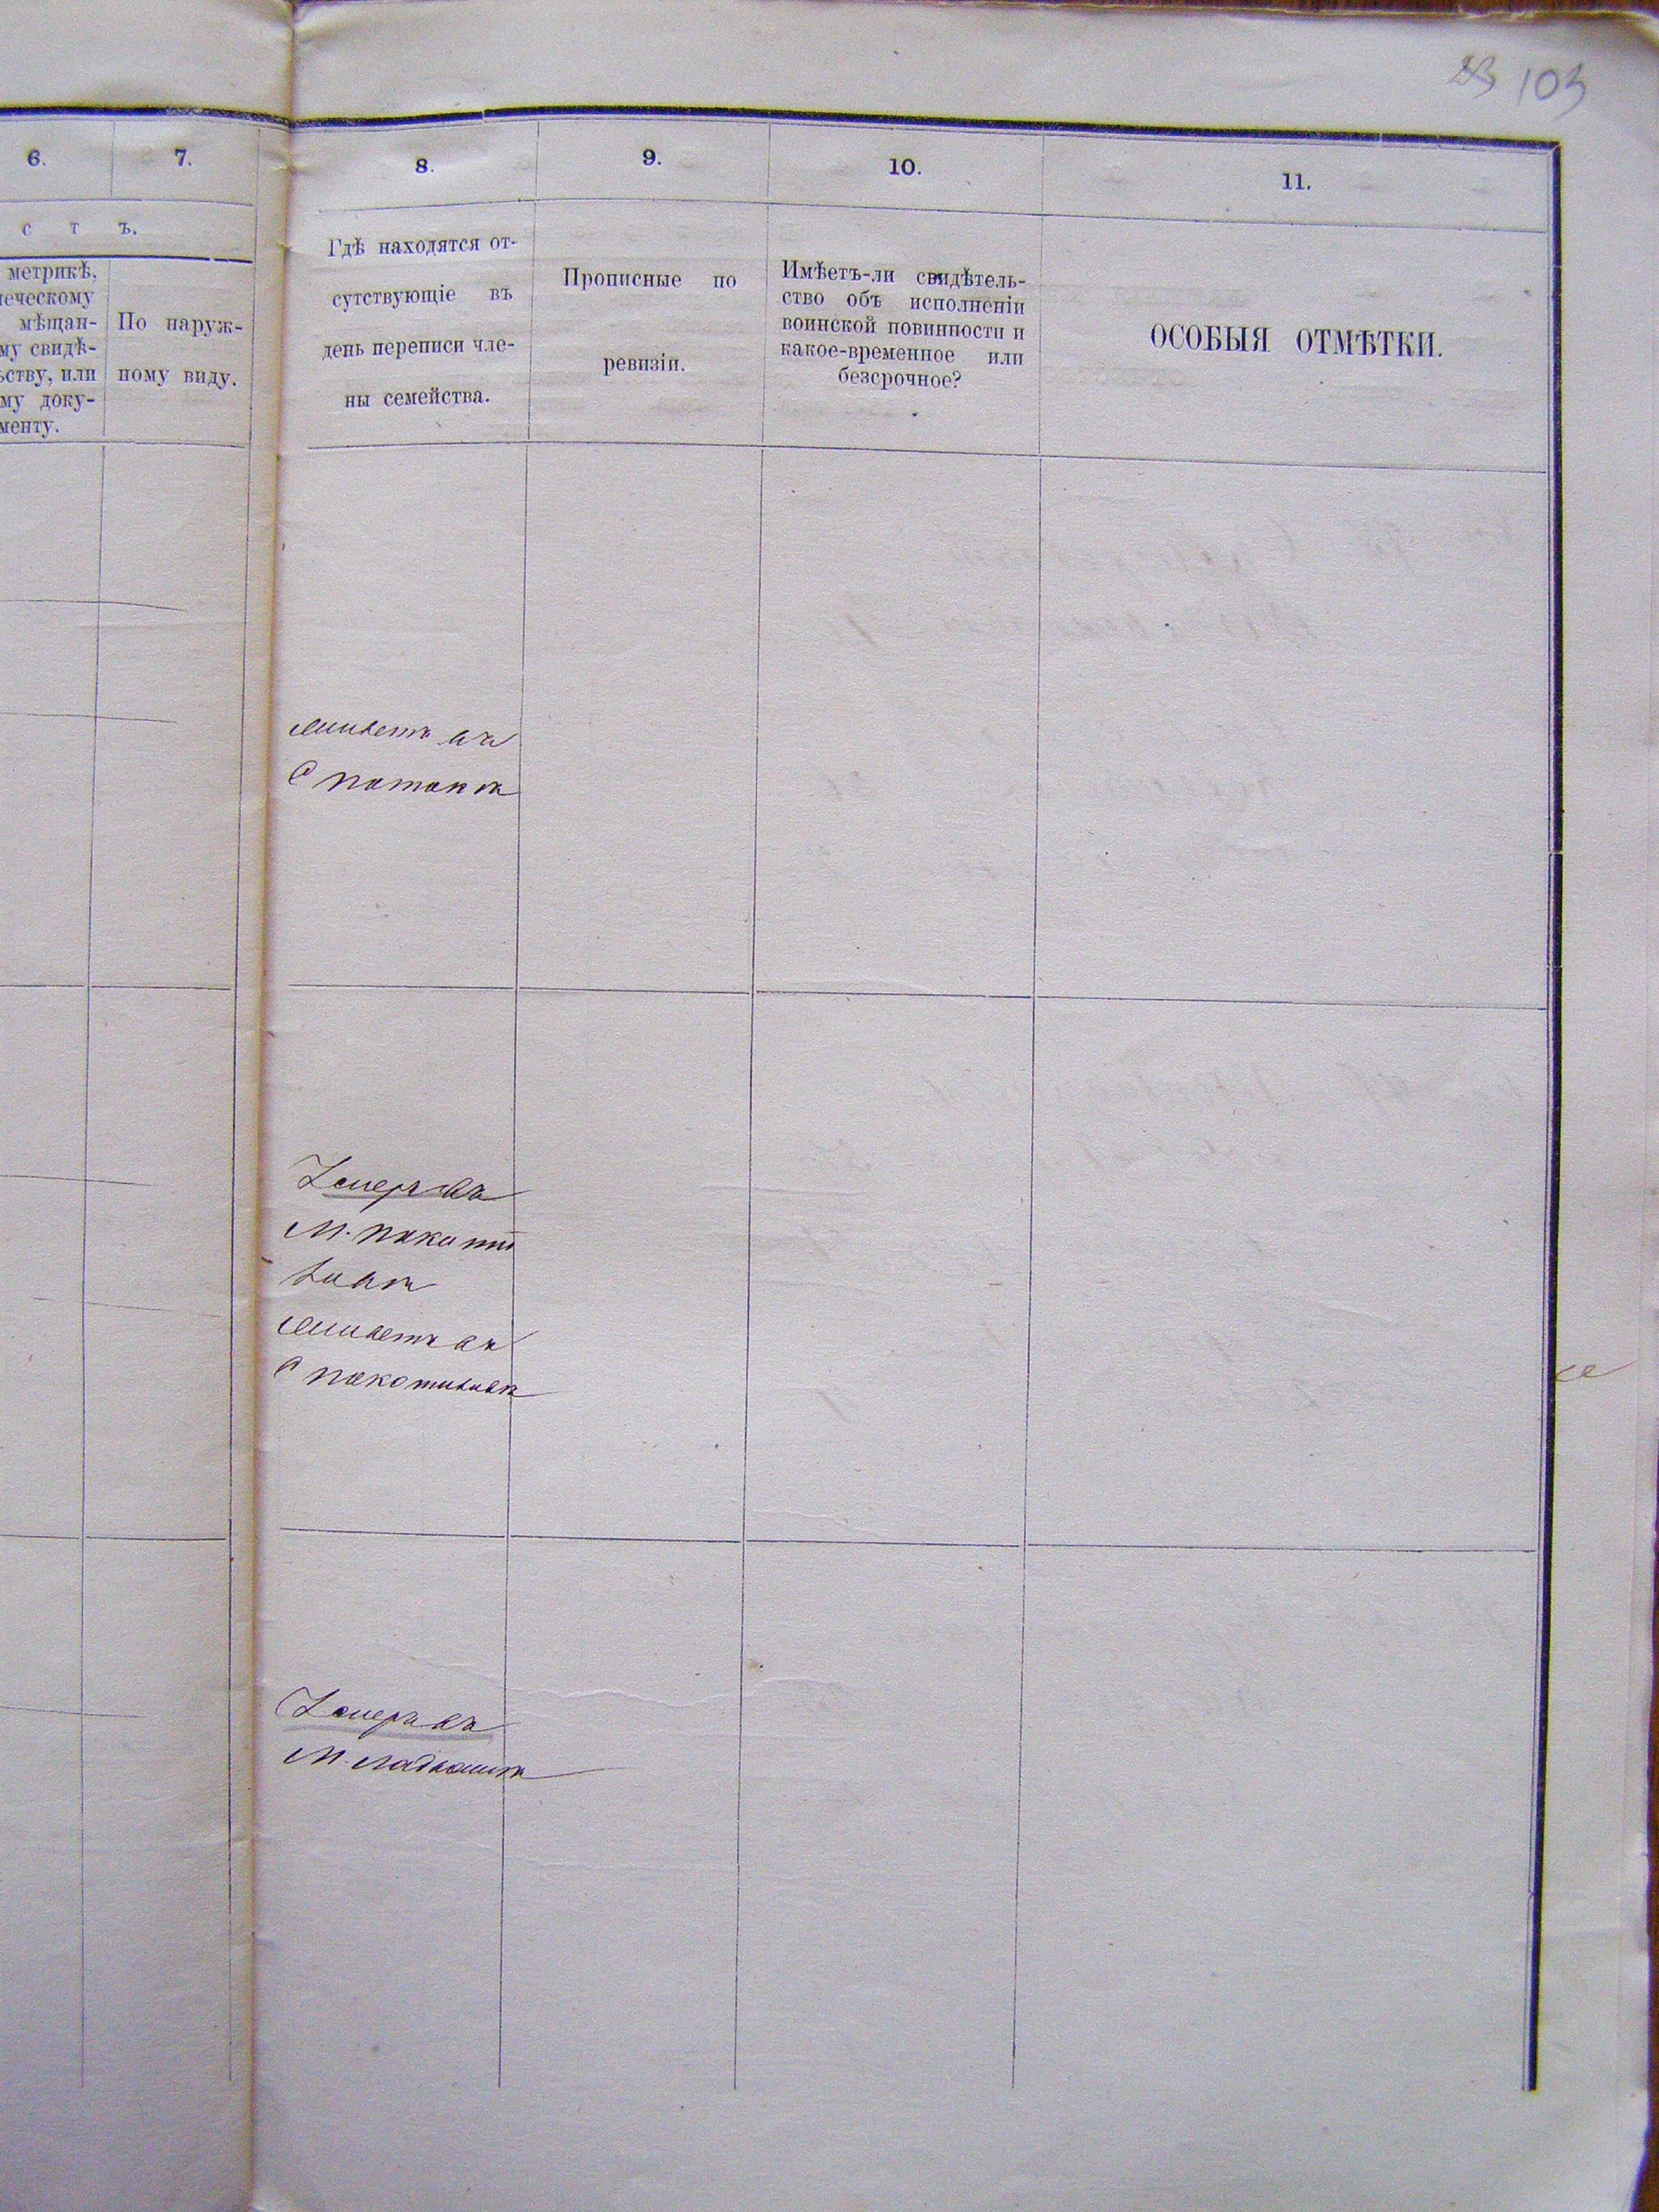 103
6.
7.
8.
9.
10.
11.
с т ъ.
метрикѣ,
ческому
мѣщан-
му свидѣ-
ству, или
му доку-
менту.
По наруж-
ному виду.
Гдѣ находятся от-
сутствующіе въ
день переписи чле-
ны семейства.
Прописные по
ревизіи.
Имѣетъ-ли свидѣтель-
ство объ исполненіи
воинской повинности и
какое-временное или
безсрочное?
ОСОБЫЯ ОТМѢТКИ.
живетъ въ
Умеръ въ
М.
живетъ въ
Умеръ въ
М.